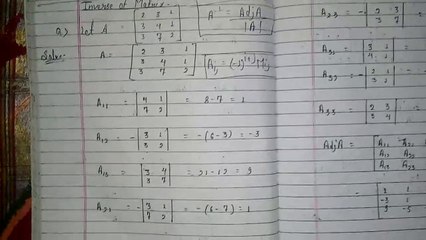 Inverse of Matrix
Q) Let A
2 3 1
3 4 1
3 7 2
A⁻¹ = AdjA / |A|
Soln:
A = [2 3 1
3 4 1
3 7 2]
Aij = (-1)^(i+j) Mij
A11 = |4 1
7 2| = 8-7 = 1
A12 = - |3 1
3 2| = -(6-3) = -3
A13 = |3 4
3 7| = 21-12 = 9
A21 = - |3 1
7 2| = -(6-7) = 1
A23 = - |2 3
3 7|
A31 = |3 1
4 1|
A32 = - |2 1
3 1|
A33 = |2 3
3 4|
AdjA = [A11 A21
A12 A22
A13 A23
= [1 1
-3 1
9 -5